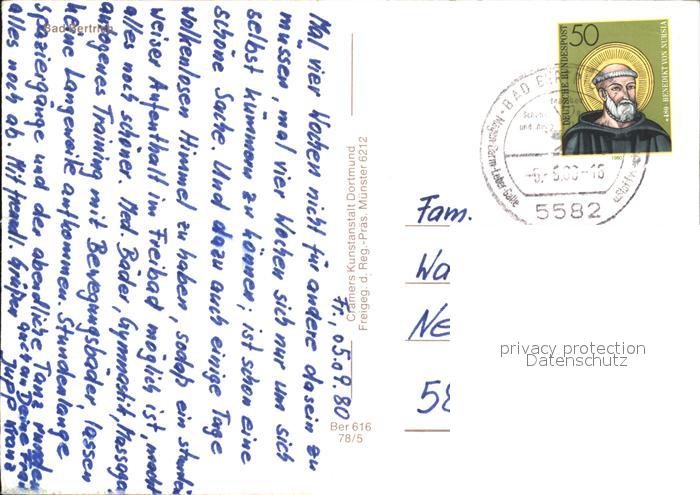 Bad Bertrich
F., 05.09.80
Mal vier Wochen nicht für andere dasein zu
müssen, mal vier Wochen sich nur um sich
selbst kümmern zu können, ist schon eine
schöne Sache. Und dazu auch einige Tage
wolkenlosen Himmel zu haben, sodaß ein stunden
weiser Aufenthalt im Freibad möglich ist, macht
alles noch schöner. Med Bäder, Gymnastik, Massage
autogenes Training u. Bewegungsbäder, lassen
keine Langeweile aufkommen. Stundenlange
Spaziergänge und der abendliche Tanz runden
alles noch ab. Mit Grüßen
Jupp
Cramers Kunstanstalt Dortmund
Freigeg. d. Reg.-Präs. Münster 6212
Ber 616
78/5
DEUTSCHE BUNDESPOST
50
*480 · BENEDIKT VON NURSIA
1980
BAD
Magen-Darm-Leber-Galle
5582
Fam.
Wa
Ne
58
privacy protection
Datenschutz